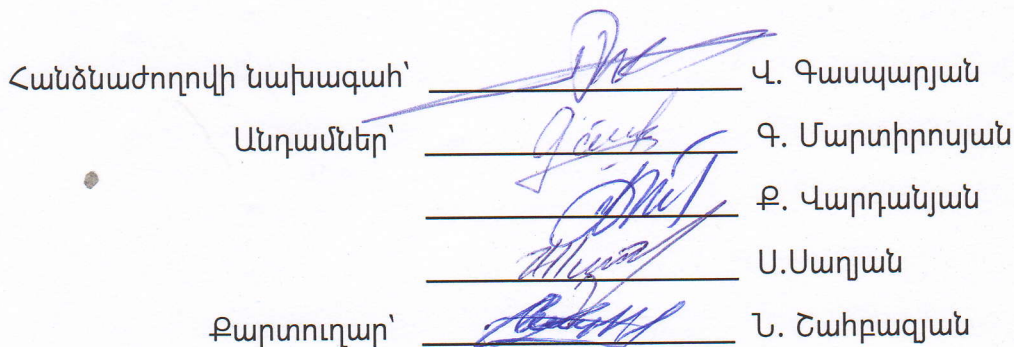 Հանձնաժողովի նախագահ՝ Վ. Գասպարյան
Անդամներ՝ Գ. Մարտիրոսյան
Ք. Վարդանյան
Ս.Սաղյան
Քարտուղար՝ Ն. Շահբազյան